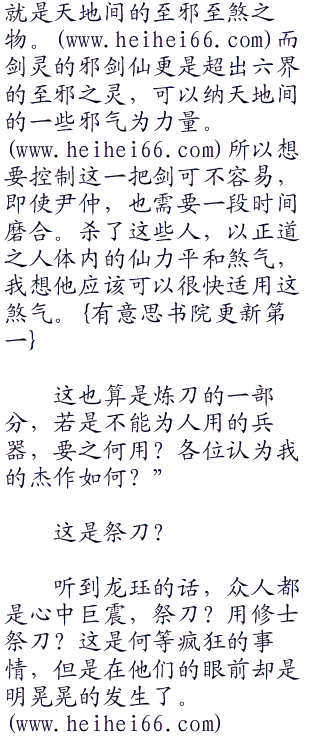 就是天地间的至邪至煞之
物。(www.heihei66.com)而
剑灵的邪剑仙更是超出六界
的至邪之灵，可以纳天地间
的一些邪气为力量。
(www.heihei66.com)所以想
要控制这一把剑可不容易，
即使尹仲，也需要一段时间
磨合。杀了这些人，以正道
之人体内的仙力平和煞气，
我想他应该可以很快适用这
煞气。{有意思书院更新第
一}
这也算是炼刀的一部
分，若是不能为人用的兵
器，要之何用？各位认为我
的杰作如何？”
这是祭刀？
听到龙珏的话，众人都
是心中巨震，祭刀？用修士
祭刀？这是何等疯狂的事
情，但是在他们的眼前却是
明晃晃的发生了。
(www.heihei66.com)